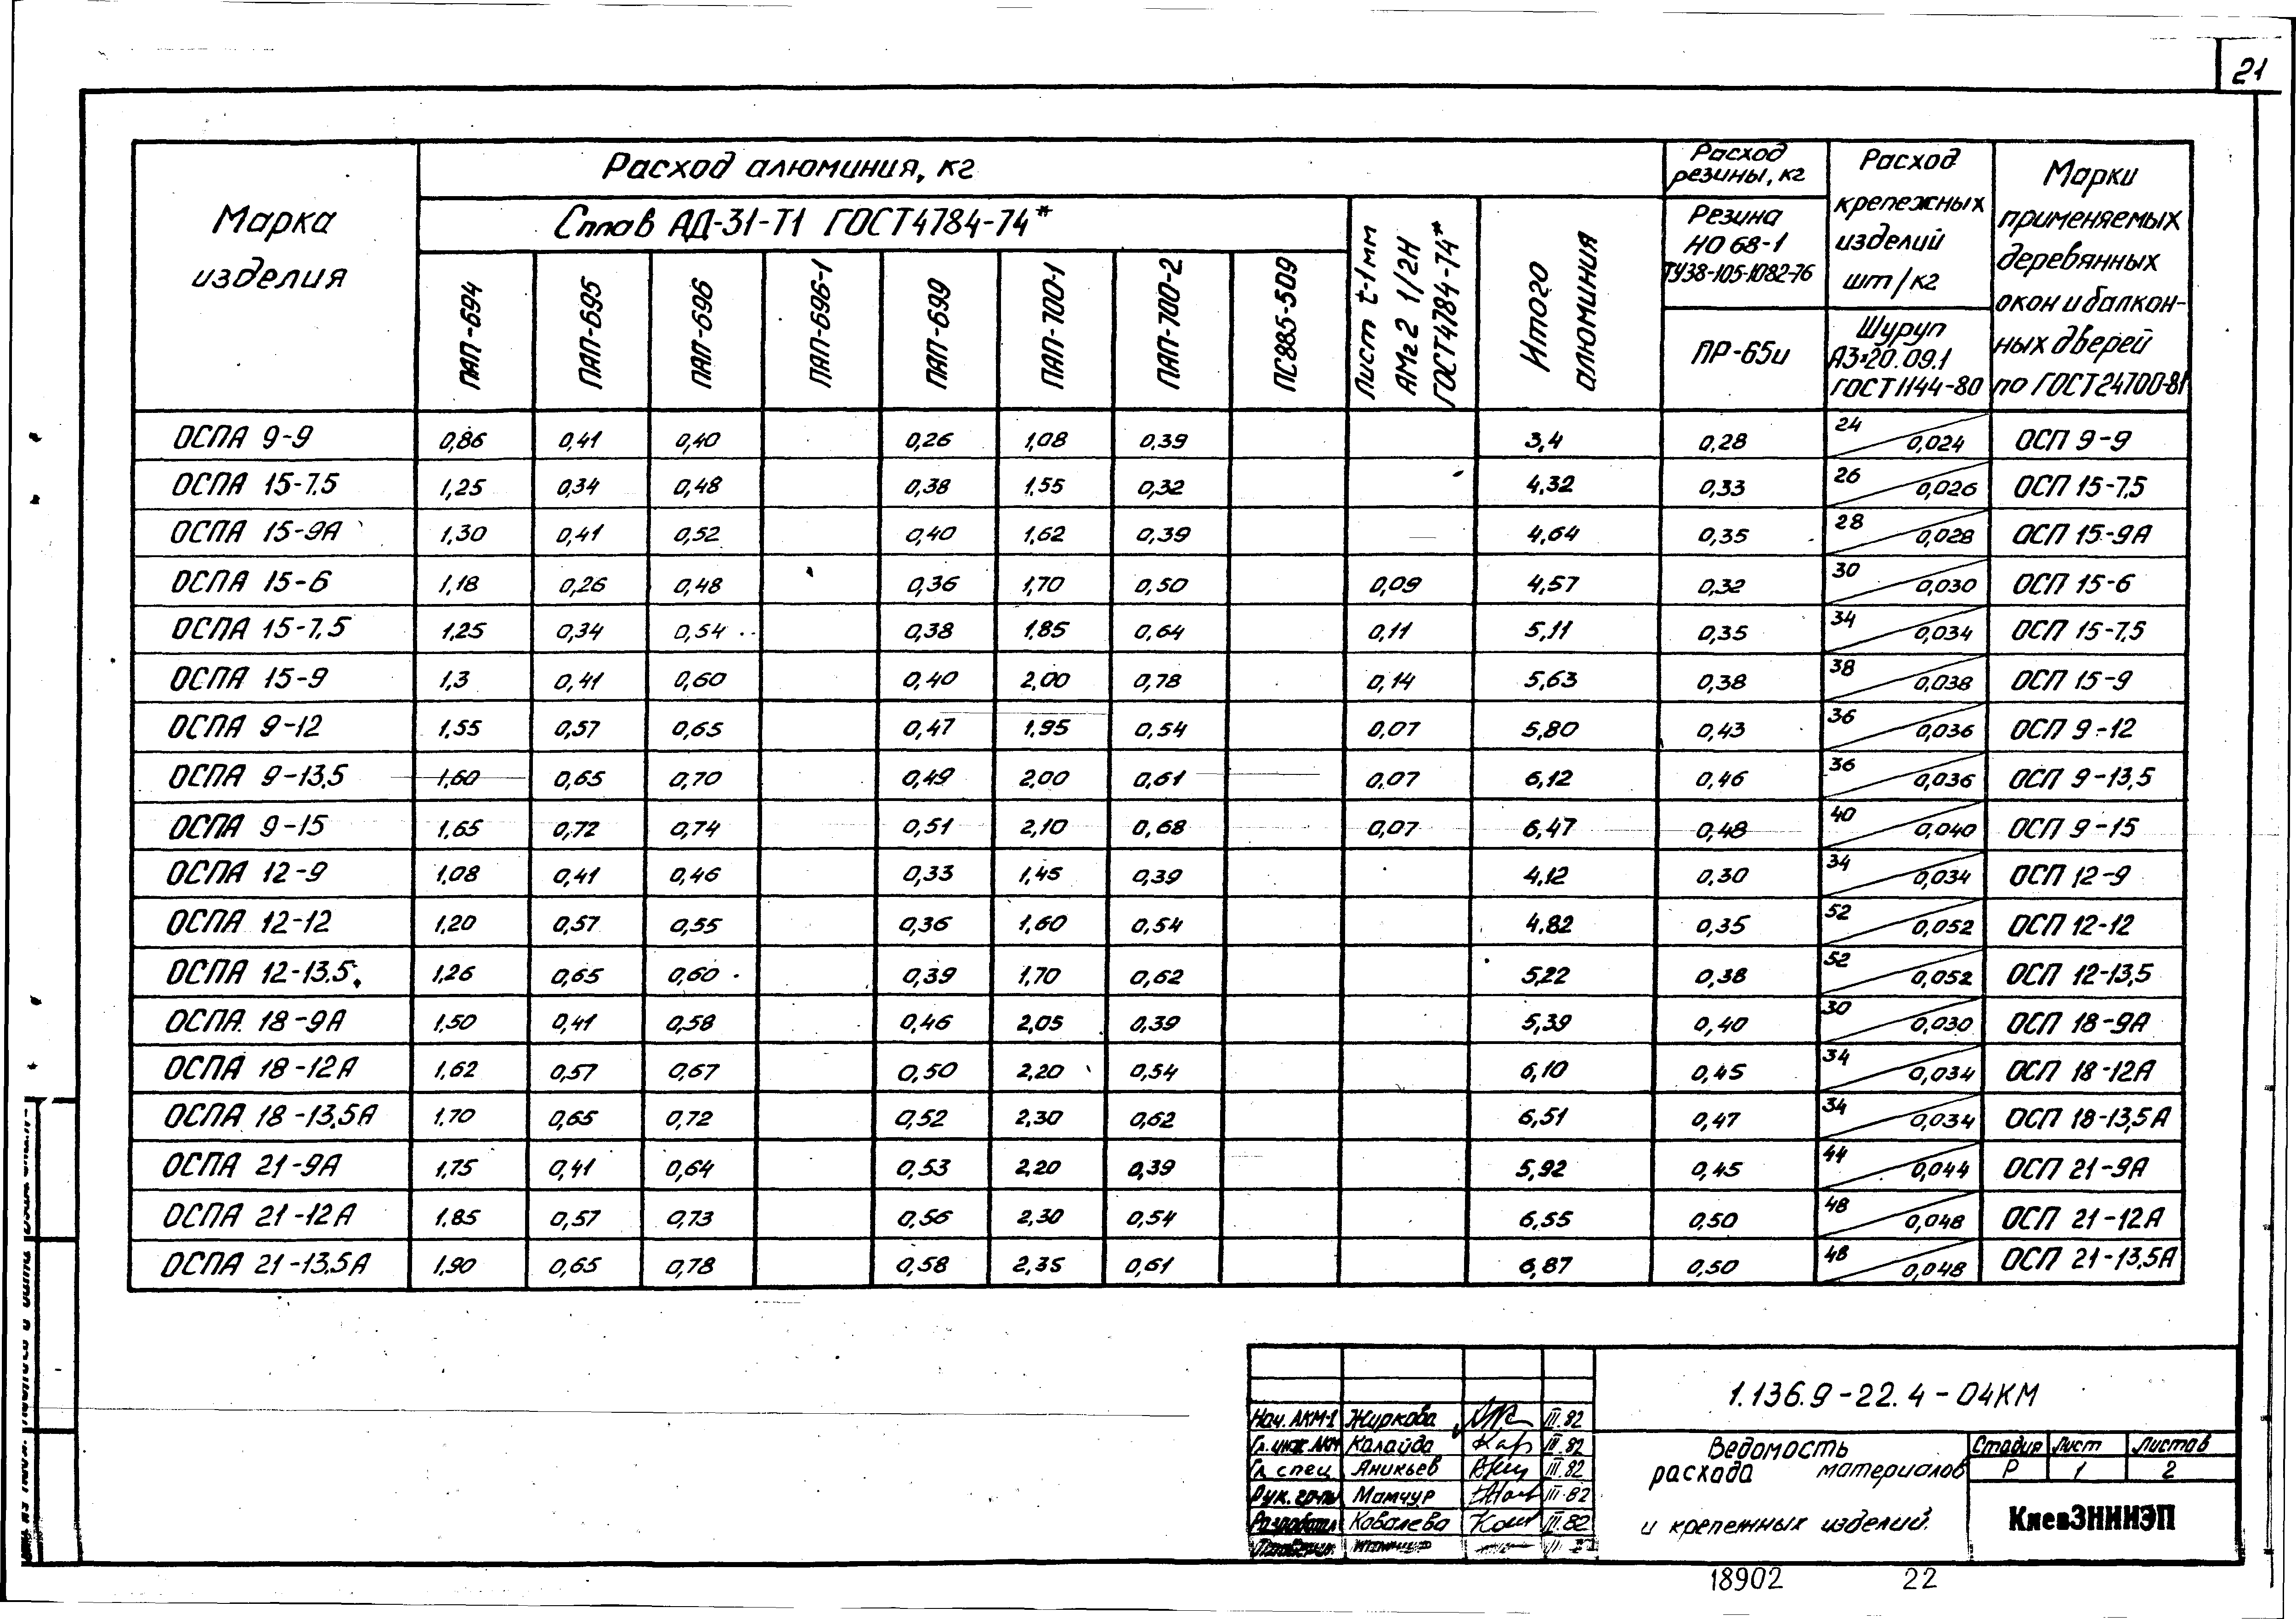 21
Марка изделия
Расход алюминия, кг
Сплав АД-31-Т1 ГОСТ4784-74*
ПАП-694 ПАП-695 ПАП-696 ПАП-696-1 ПАП-699 ПАП-700-1 ПАП-700-2 ПС885-509
Лист t-1мм АМг2 1/2Н ГОСТ4784-74*
Итого алюминия
Расход резины, кг
Резина НО 68-1 ТУ38-105-1082-76
ПР-65и
Расход крепежных изделий шт/кг
Шуруп А3×20.09.1 ГОСТ1144-80
Марки применяемых деревянных окон и балконных дверей по ГОСТ24700-81
ОСПА 9-9 0,86 0,41 0,40 0,26 1,08 0,39 3,4 0,28 24 0,024 ОСП 9-9
ОСПА 15-7,5 1,25 0,34 0,48 0,38 1,55 0,32 4,32 0,33 26 0,026 ОСП 15-7,5
ОСПА 15-9А 1,30 0,41 0,52 0,40 1,62 0,39 4,64 0,35 28 0,028 ОСП 15-9А
ОСПА 15-6 1,18 0,26 0,48 0,36 1,70 0,50 0,09 4,57 0,32 30 0,030 ОСП 15-6
ОСПА 15-7,5 1,25 0,34 0,54 0,38 1,85 0,64 0,11 5,11 0,35 34 0,034 ОСП 15-7,5
ОСПА 15-9 1,3 0,41 0,60 0,40 2,00 0,78 0,14 5,63 0,38 38 0,038 ОСП 15-9
ОСПА 9-12 1,55 0,57 0,65 0,47 1,95 0,54 0,07 5,80 0,43 36 0,036 ОСП 9-12
ОСПА 9-13,5 1,60 0,65 0,70 0,49 2,00 0,61 0,07 6,12 0,46 36 0,036 ОСП 9-13,5
ОСПА 9-15 1,65 0,72 0,74 0,51 2,10 0,68 0,07 6,47 0,48 40 0,040 ОСП 9-15
ОСПА 12-9 1,08 0,41 0,46 0,33 1,45 0,39 4,12 0,30 34 0,034 ОСП 12-9
ОСПА 12-12 1,20 0,57 0,55 0,36 1,60 0,54 4,82 0,35 52 0,052 ОСП 12-12
ОСПА 12-13,5 1,26 0,65 0,60 0,39 1,70 0,62 5,22 0,38 52 0,052 ОСП 12-13,5
ОСПА 18-9А 1,50 0,41 0,58 0,46 2,05 0,39 5,39 0,40 30 0,030 ОСП 18-9А
ОСПА 18-12А 1,62 0,57 0,67 0,50 2,20 0,54 6,10 0,45 34 0,034 ОСП 18-12А
ОСПА 18-13,5А 1,70 0,65 0,72 0,52 2,30 0,62 6,51 0,47 34 0,034 ОСП 18-13,5А
ОСПА 21-9А 1,75 0,41 0,64 0,53 2,20 0,39 5,92 0,45 44 0,044 ОСП 21-9А
ОСПА 21-12А 1,85 0,57 0,73 0,56 2,30 0,54 6,55 0,50 48 0,048 ОСП 21-12А
ОСПА 21-13,5А 1,90 0,65 0,78 0,58 2,35 0,61 6,87 0,50 48 0,048 ОСП 21-13,5А
1.136.9-22.4-04КМ
Нач. АКМ-1 Журкова III.82
Гл. инж. АКМ Калайда III.82
Гл. спец Аникьев III.82
Рук. гр-пы Мамчур III.82
Разработал Ковалева III.82
Ведомость
расхода материалов
и крепежных изделий.
Стадия Лист Листов
Р 1 2
КиевЗНИИЭП
18902 22